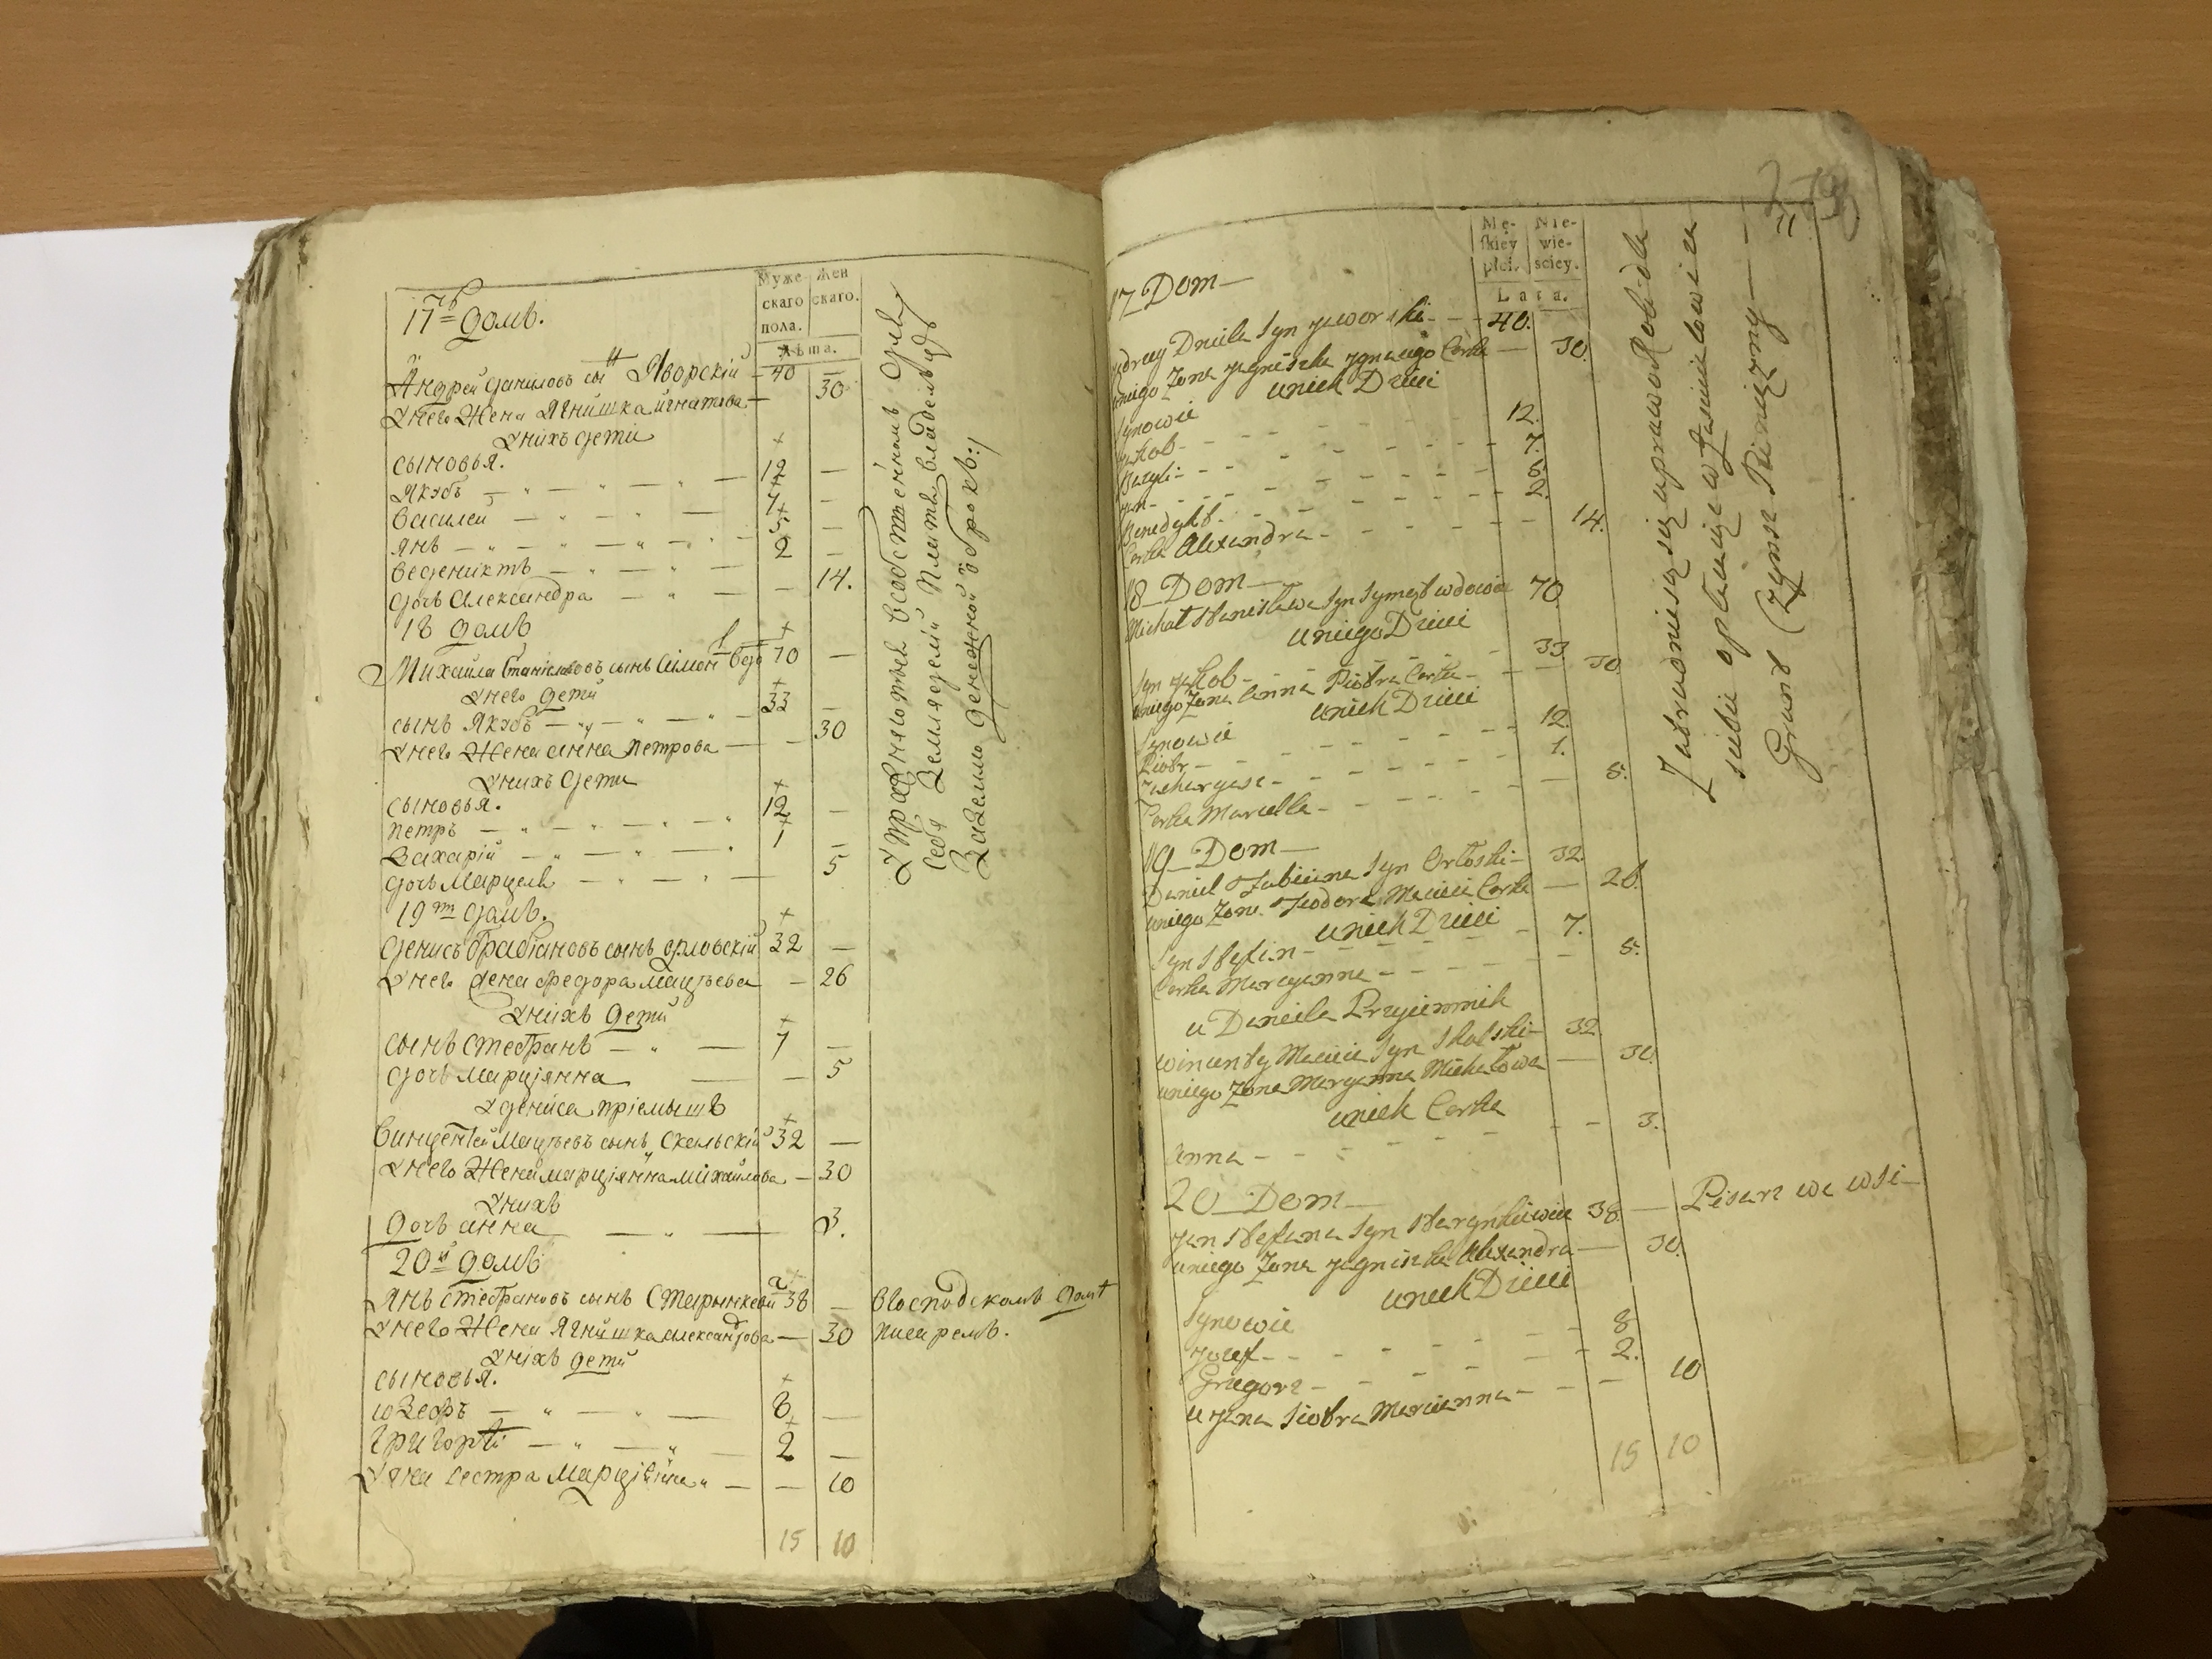 Муже скаго пола.
Жен скаго.
Лѣта.
17ъ домъ.
Андрей Даниловъ сынъ Яворскій — 40 —
У него Жена Ягнишка Игнатова — 30
У нихъ дети
Сыновья.
Якубъ — 12 —
Василей — 7 —
Янъ — 5 —
Бедениктъ — 2 —
Дочь Александра — 14.
18 домъ
Михайла Станиславовъ сынъ Симон 70 —
У него дети
Сынъ Якубъ — 33 —
У него Жена Анна Петрова — 30
У нихъ дети
Сыновья.
Петръ — 12 —
Захарій — 1 —
Дочь Марцеля — 5
19 домъ.
Денисъ Фабіановъ сынъ Орловскій 32 —
У него Жена Федора Мацѣева — 26
У нихъ дети
Сынъ Стефанъ — 7 —
Дочь Марціянна — 5
У Дениса пріемышъ
Винцентей Мацѣевъ сынъ Скальскій 32 —
У него Жена Марціянна Михайлова — 30
У нихъ
Дочь Анна — 3.
20й домъ
Янъ Стефановъ сынъ Старынкевичъ 38 — В господскомъ доме
У него Жена Ягнишка Александрова — 30 писаремъ.
У нихъ дети
Сыновья.
Юзефъ — 8 —
Григорій — 2 —
У Яна сестра Марціянна — 10
15 10
Упражняются в собственномъ
себя Земледелии Платя владельцу
За землю денежной оброкъ:/
Mę-skiey płci.
Nie-wie-sciey.
Lata.
11
17 Dom —
Jędrzey Daniela Syn Jaworski — 40.
u niego Zona Jagniszka Jgnacego Corka — 30.
u nich Dzieci
Synowie
Jakob — 12.
Bazyli — 7.
Jan — 5.
Benedykt — 2.
Corka Alexandra — 14.
18 Dom —
Michał Stanisława Syn Symont wdowiec 70.
u niego Dzieci
Syn Jakob — 33.
u niego Zona Anna Piotra Corka — 30.
u nich Dzieci
Synowie
Piotr — 12.
Zacharyasz — 1.
Corka Marcella — 5.
19 Dom —
Daniel Fabiana Syn Orłoski — 32.
u niego Zona Teodora Macieia Corka — 26.
u nich Dzieci
Syn Stefan — 7.
Corka Maryanna — 5.
u Daniela Przyiemnik
Wincenty Macieia Syn Skalski — 32.
u niego Zona Maryanna Michałowa — 30.
u nich Corka
Anna — 3.
20 Dom —
Jan Stefana Syn Starynkiewicz 38. — Pisarz we wsi —
u niego Zona Jagniszka Alexandra — 30.
u nich Dzieci
Synowie
Jozef — 8
Gregorz — 2.
u Jana Siostra Maryanna — 10
15 10
Zatrudnienie się uprawo Roli dla
siebie opłacaiąc
Grunt Czynsz Pieniężny —